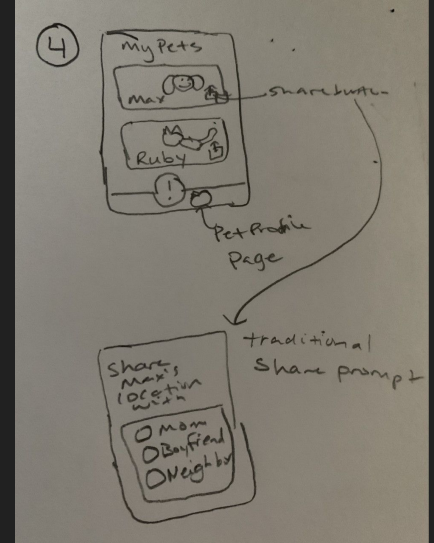 4
My Pets
Max
share button
Ruby
!
Pet Profile
Page
traditional
Share prompt
Share
Max's
location
with
Mom
Boyfriend
Neighbor